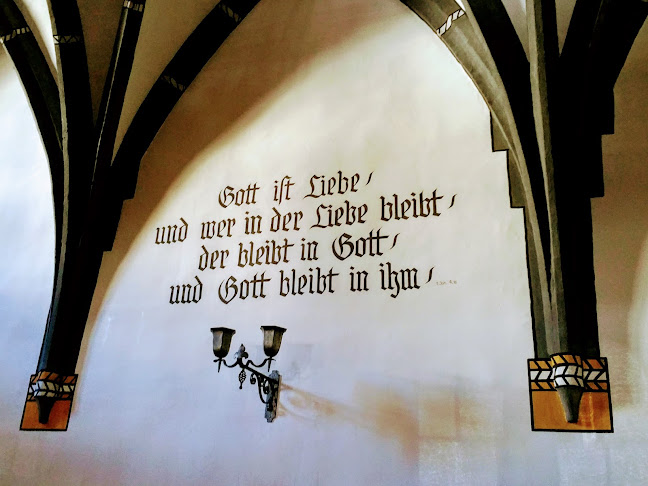 Gott ist Liebe,
und wer in der Liebe bleibt,
der bleibt in Gott,
und Gott bleibt in ihm,